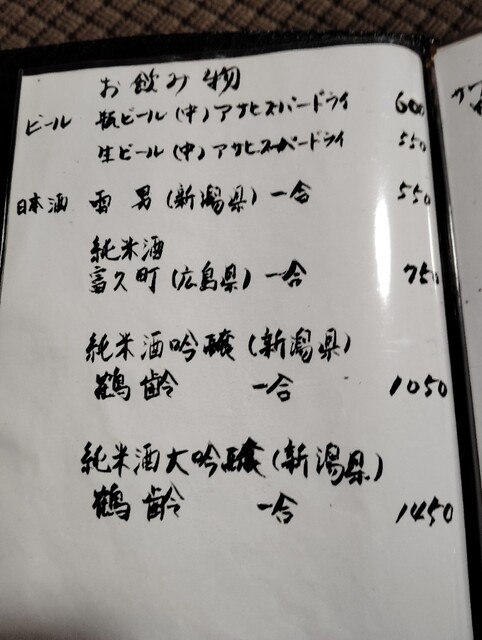 お飲み物
ビール 瓶ビール(中)アサヒスーパードライ 600
生ビール(中)アサヒスーパードライ 550
日本酒 雪男(新潟県)一合 550
純米酒
富久町(広島県)一合 750
純米酒吟醸(新潟県)
鶴齢 一合 1050
純米酒大吟醸(新潟県)
鶴齢 一合 1450